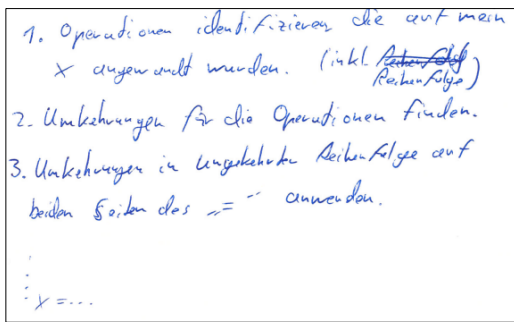 1. Operationen identifizieren die auf mein
x angewandt wurden. (inkl. Reihenfolge
Reihenfolge)
2. Umkehrungen für die Operationen finden.
3. Umkehrungen in umgekehrter Reihenfolge auf
beiden Seiten des „=“ anwenden.
⋮
x = ...